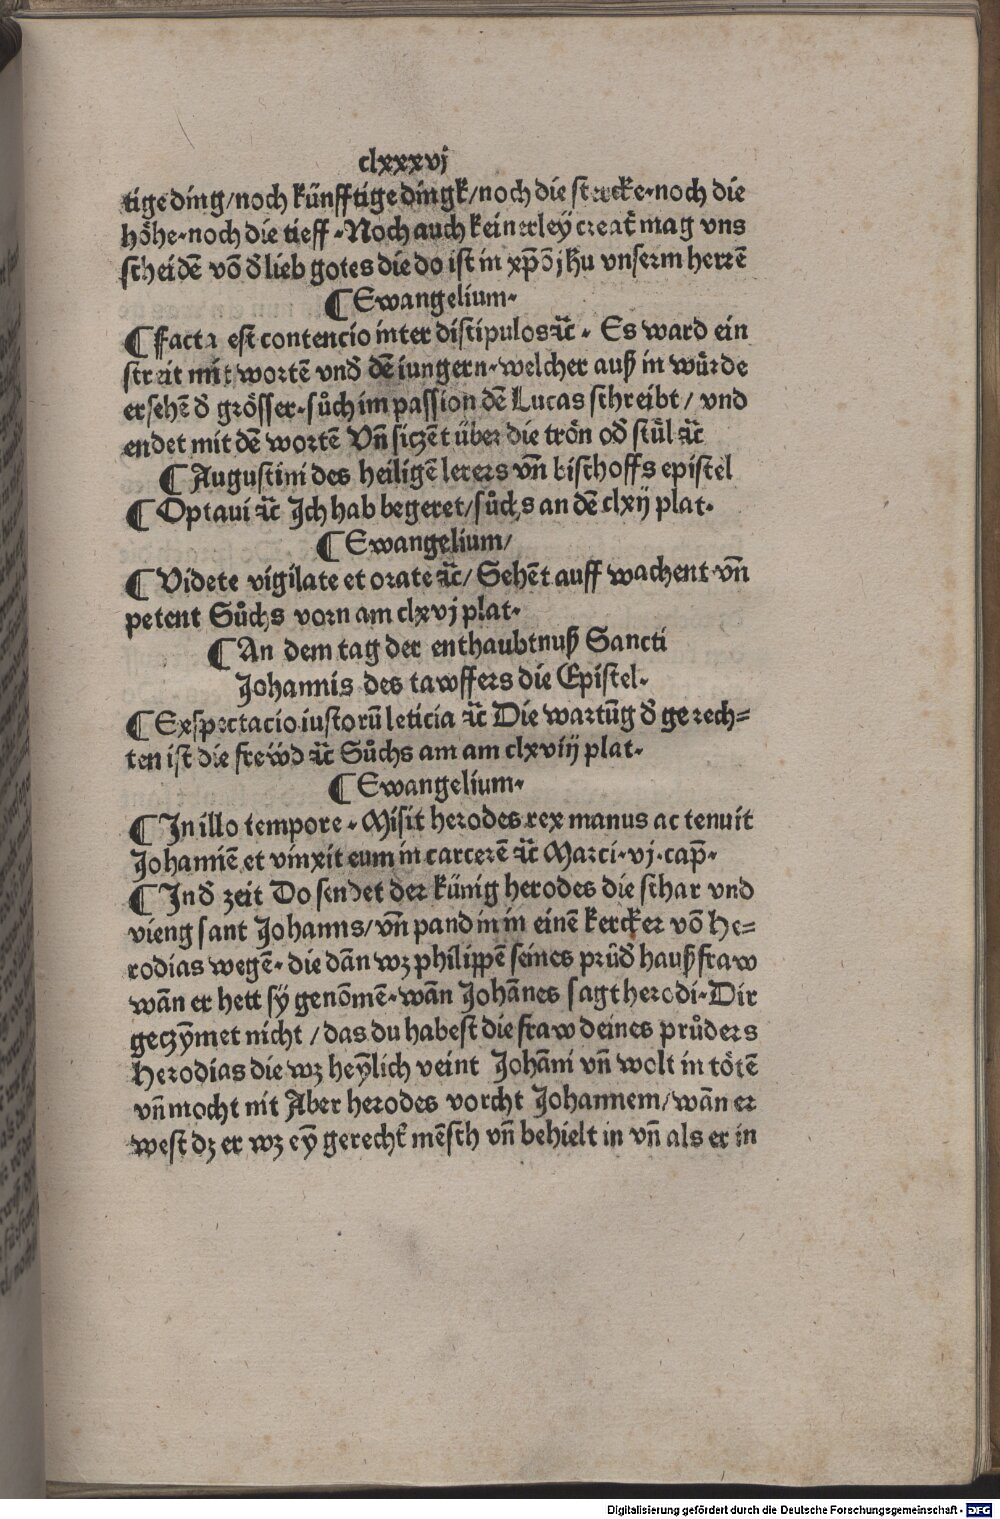 clxxxvj
tige ding/noch künfftige dingk/noch die stercke·noch die
höhe·noch die tieff·Noch auch keinerley creat̄ mag vns
scheidē vō đ lieb gotes die do ist in xp̄ō jhu vnserm herrē
¶ Ewangelium·
¶ Facta est contencio inter discipulos ⁊c̄· Es ward ein
streit mit wortē vnđ dē iungern·welcher auß in würde
ersehē đ grösser·sůch im passion dē Lucas schreibt/ vnd
endet mit dē wortē Vn̄ siczēt über die trön ođ stůl ⁊c̄
¶ Augustini des heiligē lerers vn̄ bischoffs epistel
¶ Optaui ⁊c̄ Ich hab begeret/sůchs an dē clxij plat·
¶ Ewangelium/
¶ Videte vigilate et orate ⁊c̄/ Sehēt auff wachent vn̄
petent Sůchs vorn am clxvj plat·
¶ An dem tag der enthaubtnuß Sancti
Johannis des tawffers die Epistel·
¶ Exspectacio iustorū leticia ⁊c̄ Die wartūg đ gerech=
ten ist die frewd ⁊c̄ Sůchs am am clxviij plat·
¶ Ewangelium·
¶ In illo tempore·Misit herodes rex manus ac tenuit
Johannē et vinxit eum in carcerē ⁊c̄ Marci·vj·cap̄·
¶ Inđ zeit Do sendet der künig herodes die schar vnd
vieng sant Johanns/vn̄ pand in in einē kercker vō He=
rodias wegē·die dān wz philippē seines průđ haußfraw
wān er hett sy genōmē·wān Johānes sagt herodi·Dir
geczȳmet nicht/das du habest die fraw deines průders
Herodias die wz heȳlich veint Johāni vn̄ wolt in tötē
vn̄ mocht nit Aber herodes vorcht Johannem/wān er
west dz er wz eȳ gerecht̄ mēsch vn̄ behielt in vn̄ als er in
Digitalisierung gefördert durch die Deutsche Forschungsgemeinschaft - DFG